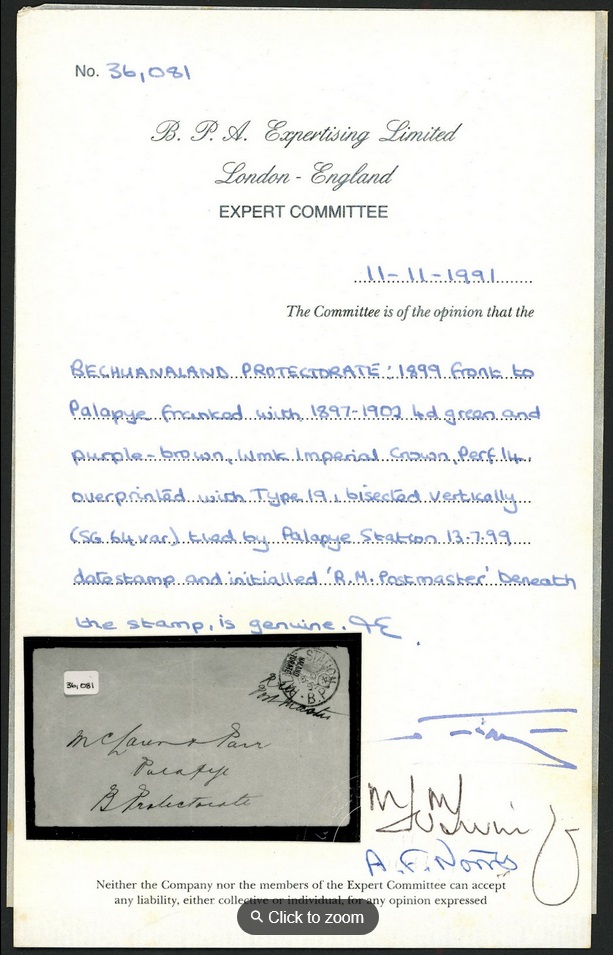 No. 36,081
B. P. A. Expertising Limited
London - England
EXPERT COMMITTEE
11-11-1991
The Committee is of the opinion that the
BECHUANALAND PROTECTORATE: 1899 front to
Palapye franked with 1897-1902 4d green and
purple-brown, Wmk Imperial Crown, Perf 14,
overprinted with Type 19, bisected vertically
(SG 64 var) tied by Palapye Station 13.7.99
datestamp and initialled 'R.M. Postmaster' beneath
the stamp, is genuine.
36,081
STATION
B.P.
Postmaster
McLaren & Parr
Palapye
B Protectorate
A. F. Norris
Neither the Company nor the members of the Expert Committee can accept
any liability, either collective or individual, for any opinion expressed
Click to zoom